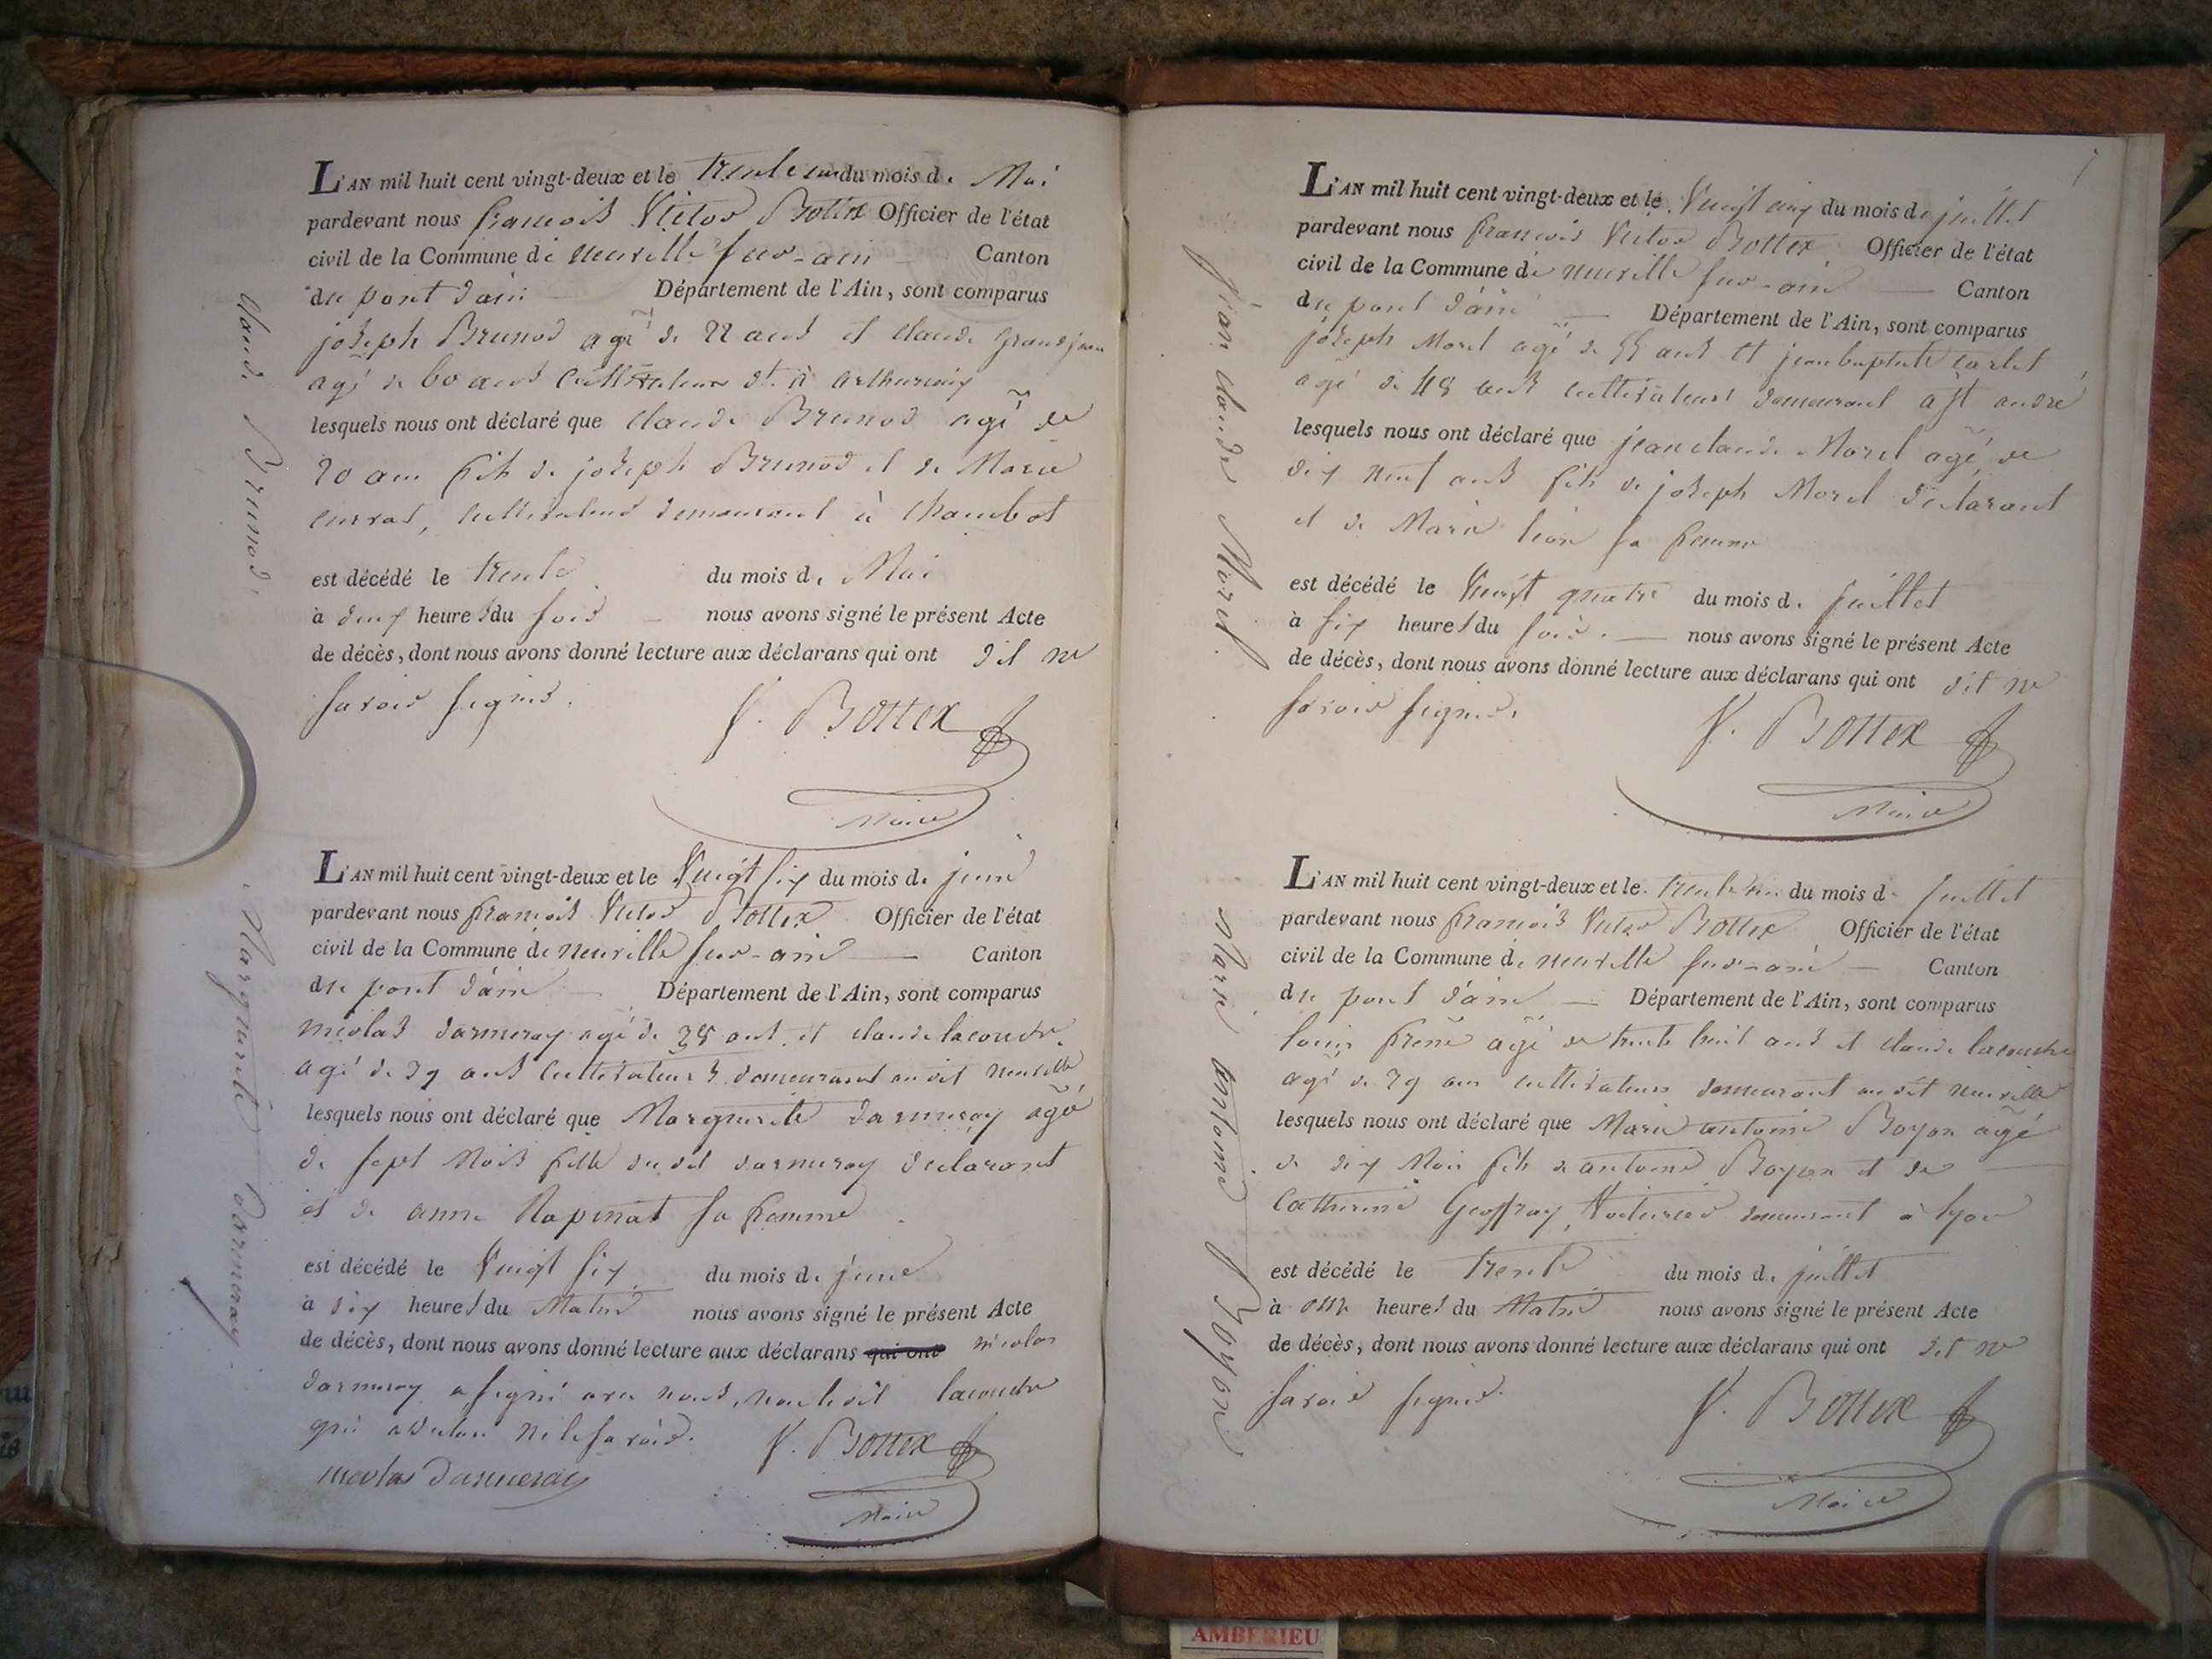 L'AN mil huit cent vingt-deux et le trente un du mois de Mai
pardevant nous françois Victor Bottex Officier de l'état
civil de la Commune de neuville sur-ain Canton
du pont d'ain Département de l'Ain, sont comparus
joseph Brunod agé de 22 ans et claude grandjean
agé de 60 ans cultivateurs
lesquels nous ont déclaré que claude Brunod agé de
20 ans fils de joseph Brunod et de Marie
currat, cultivateurs demeurant à Chambot
est décédé le trente du mois de Mai
à deux heures du soir nous avons signé le présent Acte
de décès, dont nous avons donné lecture aux déclarans qui ont dit ne
savoir signer.
V. Bottex
Maire
claude Brunod,
L'AN mil huit cent vingt-deux et le Vingt six du mois de juin
pardevant nous françois Victor Bottex Officier de l'état
civil de la Commune de neuville sur-ain Canton
du pont d'ain Département de l'Ain, sont comparus
nicolas darmeray agé de 38 ans et claude lacoudre
agé de 39 ans cultivateurs demeurant au dit neuville
lesquels nous ont déclaré que Marguerite darmeray agé
de sept Mois fille du dit darmeray déclarant
et de anne Rapinat sa femme
est décédé le Vingt six du mois de juin
à dix heures du Matin nous avons signé le présent Acte
de décès, dont nous avons donné lecture aux déclarans qui ont nicolas
darmeray a signé avec nous, non ledit lacoudre
qui a déclaré ne le savoir.
V. Bottex
nicolas Darmeray
Maire
Marguerite darmeray
7
L'AN mil huit cent vingt-deux et le Vingt cinq du mois de juillet
pardevant nous françois Victor Bottex Officier de l'état
civil de la Commune de neuville sur-ain Canton
du pont d'ain Département de l'Ain, sont comparus
joseph Morel agé de 55 ans et jean baptiste carlet
agé de 48 ans cultivateurs demeurant à st andré
lesquels nous ont déclaré que jean claude Morel agé de
dix neuf ans fils de joseph Morel déclarant
et de Marie sa femme
est décédé le Vingt quatre du mois de juillet
à six heures du soir. nous avons signé le présent Acte
de décès, dont nous avons donné lecture aux déclarans qui ont dit ne
savoir signer.
V. Bottex
Maire
jean claude Morel.
L'AN mil huit cent vingt-deux et le trente un du mois de juillet
pardevant nous françois Victor Bottex Officier de l'état
civil de la Commune de neuville sur-ain Canton
du pont d'ain Département de l'Ain, sont comparus
agé de trente huit ans et claude lacoudre
agé de 39 ans cultivateurs demeurant au dit neuville
lesquels nous ont déclaré que Marie antoine Boyon agé
de dix Mois fils de antoine Boyon et de
Catherine Geoffray, Voiturier demeurant à lyon
est décédé le trente du mois de juillet
à onze heures du Matin nous avons signé le présent Acte
de décès, dont nous avons donné lecture aux déclarans qui ont dit ne
savoir signer.
V. Bottex
Maire
Marie antoine Boyon
AMBERIEU